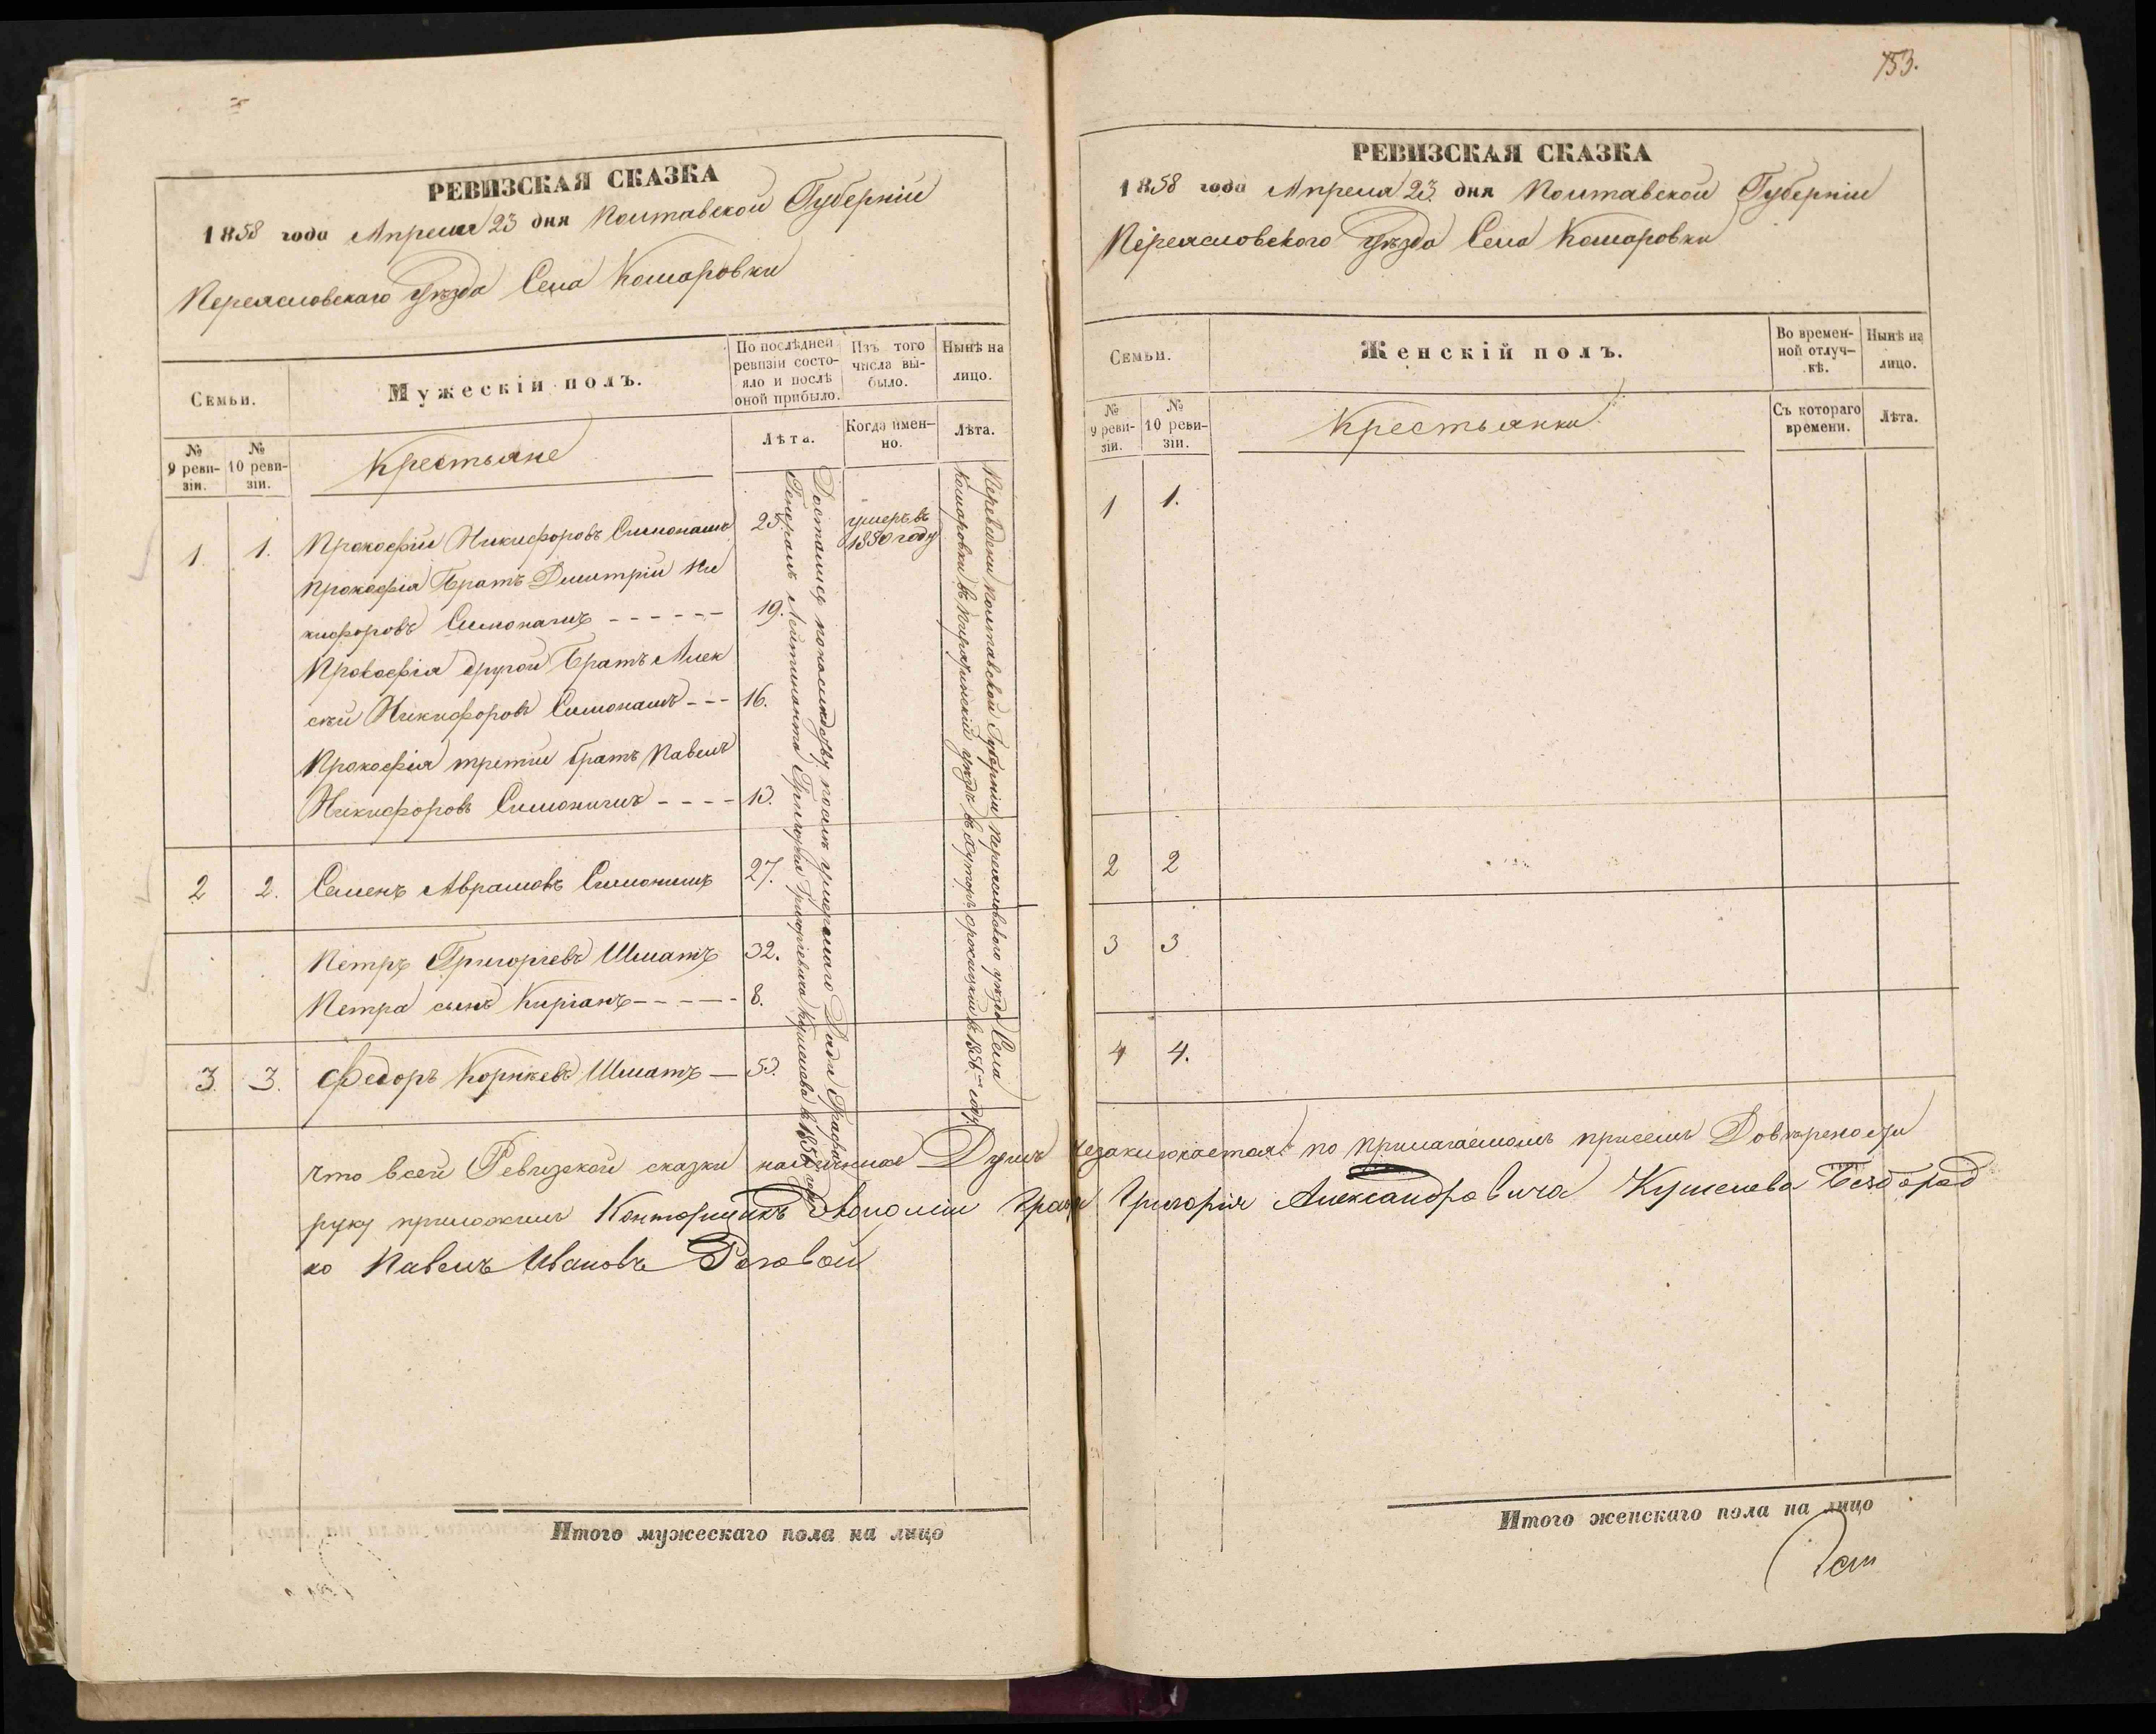 153.
РЕВИЗСКАЯ СКАЗКА
1858 года Апреля 23 дня Полтавской Губерніи
Переясловскаго Уезда Села Комаровки
Семьи.
Мужескій полъ.
По послѣдней ревизіи состояло и послѣ оной прибыло.
Изъ того числа выбыло.
Нынѣ на лицо.
№ 9 ревизіи.
№ 10 ревизіи.
Крестьяне
Лѣта.
Когда именно.
Лѣта.
1. 1. Прокофій Никифоровъ Симонашъ 25. умеръ въ
1850 году
Прокофія Братъ Дмитрій Ни
кифоровъ Симонашъ - - - - - - 19.
Прокофія другой Братъ Алек
сѣй Никифоровъ Симонашъ - - - 16.
Прокофія третій братъ Павелъ
Никифоровъ Симонашъ - - - - 13.
2 2. Семенъ Аврамовъ Симонашъ 27.
Петръ Григорьевъ Шматъ 32.
Петра сынъ Кирiанъ - - - - - 8.
3. 3. Федоръ Корнѣевъ Шматъ — 53.
Достались по наследству после умершаго Дяди Графа
Генералъ Лейтинанта Григорія Григорьевича Кушелева в 1856 году
Переведены Полтавской Губерніи Переясловского уезда Села
Комаровки въ Пирятинскій уездъ въ Хуторъ в 1856 году
что всей Ревизской сказки наличныхъ Душъ незаключается по прилагаемомъ присемъ Доверености
руку приложилъ Конторщикъ Графа Григорія Александровича Кушелева Безбород
ко Павелъ Ивановъ
Итого мужескаго пола на лицо
РЕВИЗСКАЯ СКАЗКА
1858 года Апреля 23. дня Полтавской Губерніи
Переясловского Уезда Села Комаровки
Семьи.
Женскій полъ.
Во временной отлучкѣ.
Нынѣ на лицо.
№ 9 ревизіи.
№ 10 ревизіи.
Крестьянки
Съ котораго времени.
Лѣта.
1 1.
2 2
3 3
4 4.
Итого женскаго пола на лицо